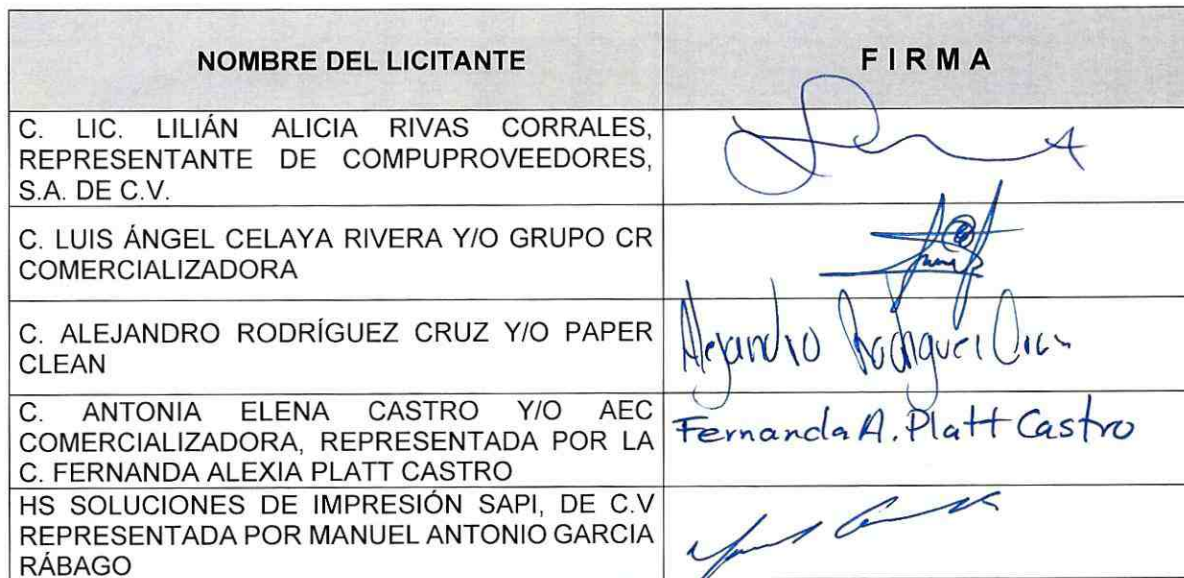 NOMBRE DEL LICITANTE
F I R M A
C. LIC. LILIÁN ALICIA RIVAS CORRALES,
REPRESENTANTE DE COMPUPROVEEDORES,
S.A. DE C.V.
C. LUIS ÁNGEL CELAYA RIVERA Y/O GRUPO CR
COMERCIALIZADORA
C. ALEJANDRO RODRÍGUEZ CRUZ Y/O PAPER
CLEAN
Alejandro Rodriguez Cruz
C. ANTONIA ELENA CASTRO Y/O AEC
COMERCIALIZADORA, REPRESENTADA POR LA
C. FERNANDA ALEXIA PLATT CASTRO
Fernanda A. Platt Castro
HS SOLUCIONES DE IMPRESIÓN SAPI, DE C.V
REPRESENTADA POR MANUEL ANTONIO GARCIA
RÁBAGO